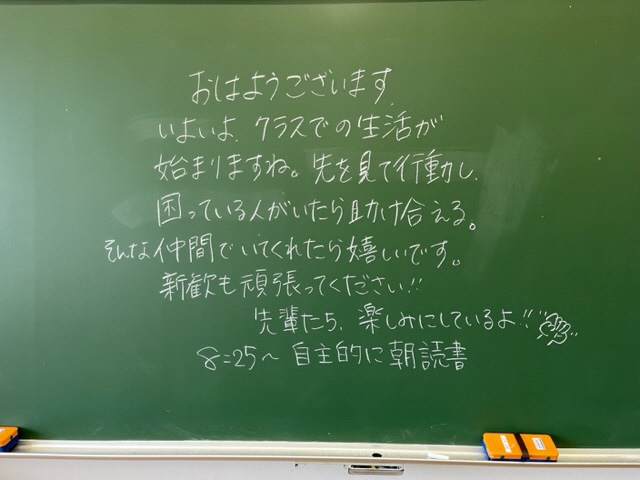 おはようございます.
いよいよ、クラスでの生活が
始まりますね。先を見て行動し、
困っている人がいたら助け合える。
そんな仲間でいてくれたら嬉しいです。
新歓も頑張ってください!!
先輩たち、楽しみにしているよ!!
8:25～ 自主的に朝読書